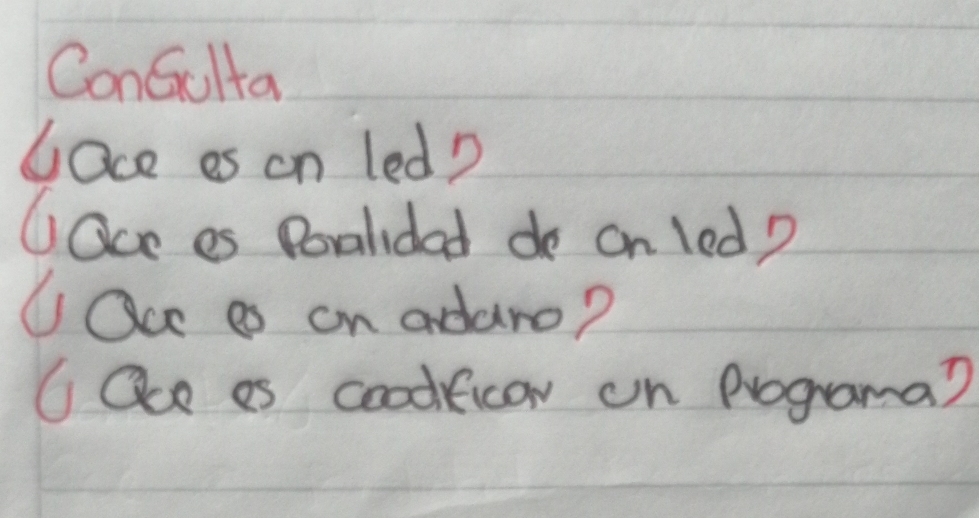 Consulta
¿Que es un led?
¿Que es Poralidad de un led?
¿Que es un arduino?
¿Que es coodificar un Programa?